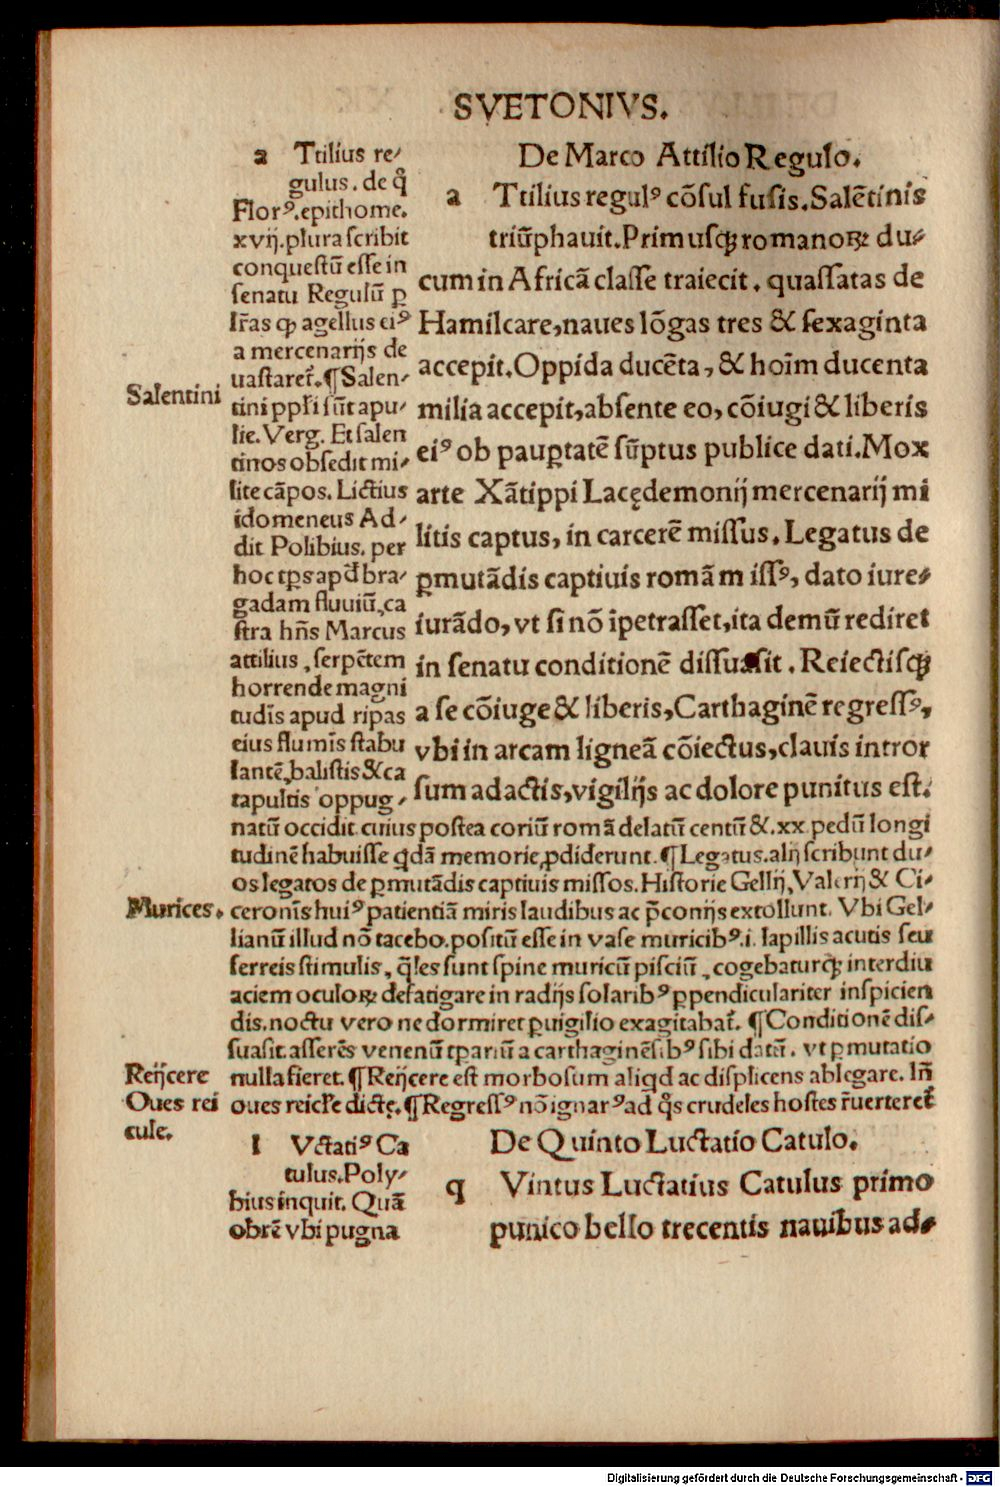 SVETONIVS.
De Marco Attilio Regulo.
a Ttilius regulꝰ cõsul fusis. Salẽtinis
triũphauit. Primusqꝫ romanoꝝ du⸗
cum in Africã classe traiecit. quassatas de
Hamilcare, naues lõgas tres & sexaginta
accepit. Oppida ducẽta, & hoĩm ducenta
milia accepit, absente eo, cõiugi & liberis
eiꝰ ob paupꝑtatẽ sũptus publice dati. Mox
arte Xãtippi Lacędemonij mercenarij mi
litis captus, in carcerẽ missus. Legatus de
ꝑmutãdis captiuis romã missꝰ, dato iure⸗
iurãdo, vt si nõ ĩpetrasset, ita demũ rediret
in senatu conditionẽ dissuasit. Reiectisqꝫ
a se cõiuge & liberis, Carthaginẽ regressꝰ,
vbi in arcam ligneã cõiectus, clauis intror
sum adactis, vigilijs ac dolore punitus est.
a Ttilius re⸗
gulus. de q̊
Florꝰ. epithome.
xvij. plura scribit
conquestũ esse in
senatu Regulũ ꝑ
lr̃as ꝙ agellus eiꝰ
a mercenarijs de
uastaret̃. ¶ Salen⸗
tini ppl̃i sũt apu⸗
lie. Verg. Et salen
tinos obsedit mi⸗
lite cãpos. Lictius
idomeneus Ad⸗
dit Polibius. per
hoc tp̃s apđ bra⸗
gadam fluuiũ, ca
stra hñs Marcus
attilius, serpẽtem
horrende magni
tudis apud ripas
eius flumĩs stabu
lantẽ, balistis & ca
tapultis oppug⸗
natũ occidit. cuius postea coriũ romã delatũ centũ &. xx pedũ longi
tudinẽ habuisse q̃dã memorie ꝓdiderunt. ¶ Legatus. alij scribunt du⸗
os legatos de ꝑmutãdis captiuis missos. Historie Gellij, Valerij & Ci⸗
ceronis huiꝰ patientiã miris laudibus ac p̃conijs extollunt. Vbi Gel⸗
lianũ illud nõ tacebo. positũ esse in vase muricibꝰ. i. lapillis acutis seu
ferreis stimulis, q̃les sunt spine muricũ pisciũ, cogebaturqꝫ interdiu
aciem oculoꝝ defatigare in radijs solaribꝰ ꝑpendiculariter inspicien
dis. noctu vero ne dormiret ꝑuigilio exagitabat̃. ¶ Conditionẽ dis⸗
suasit. asserẽs venenũ tꝑariũ a carthaginẽsibꝰ sibi datũ. vt ꝑmutatio
nulla fieret. ¶ Reijcere est morbosum aliqd ac displicens ablegare. Iñ
oues reicl̃e dictę. ¶ Regressꝰ nõ ignarꝰ ad q̊s crudeles hostes r̃uerteret̃
Salentini
Murices.
Reijcere
Oues rei
cule.
De Quinto Luctatio Catulo.
q Vintus Luctatius Catulus primo
punico bello trecentis nauibus ad⸗
l Vctatiꝰ Ca
tulus. Poly⸗
bius inquit. Quã
obrẽ vbi pugna
Digitalisierung gefördert durch die Deutsche Forschungsgemeinschaft - DFG